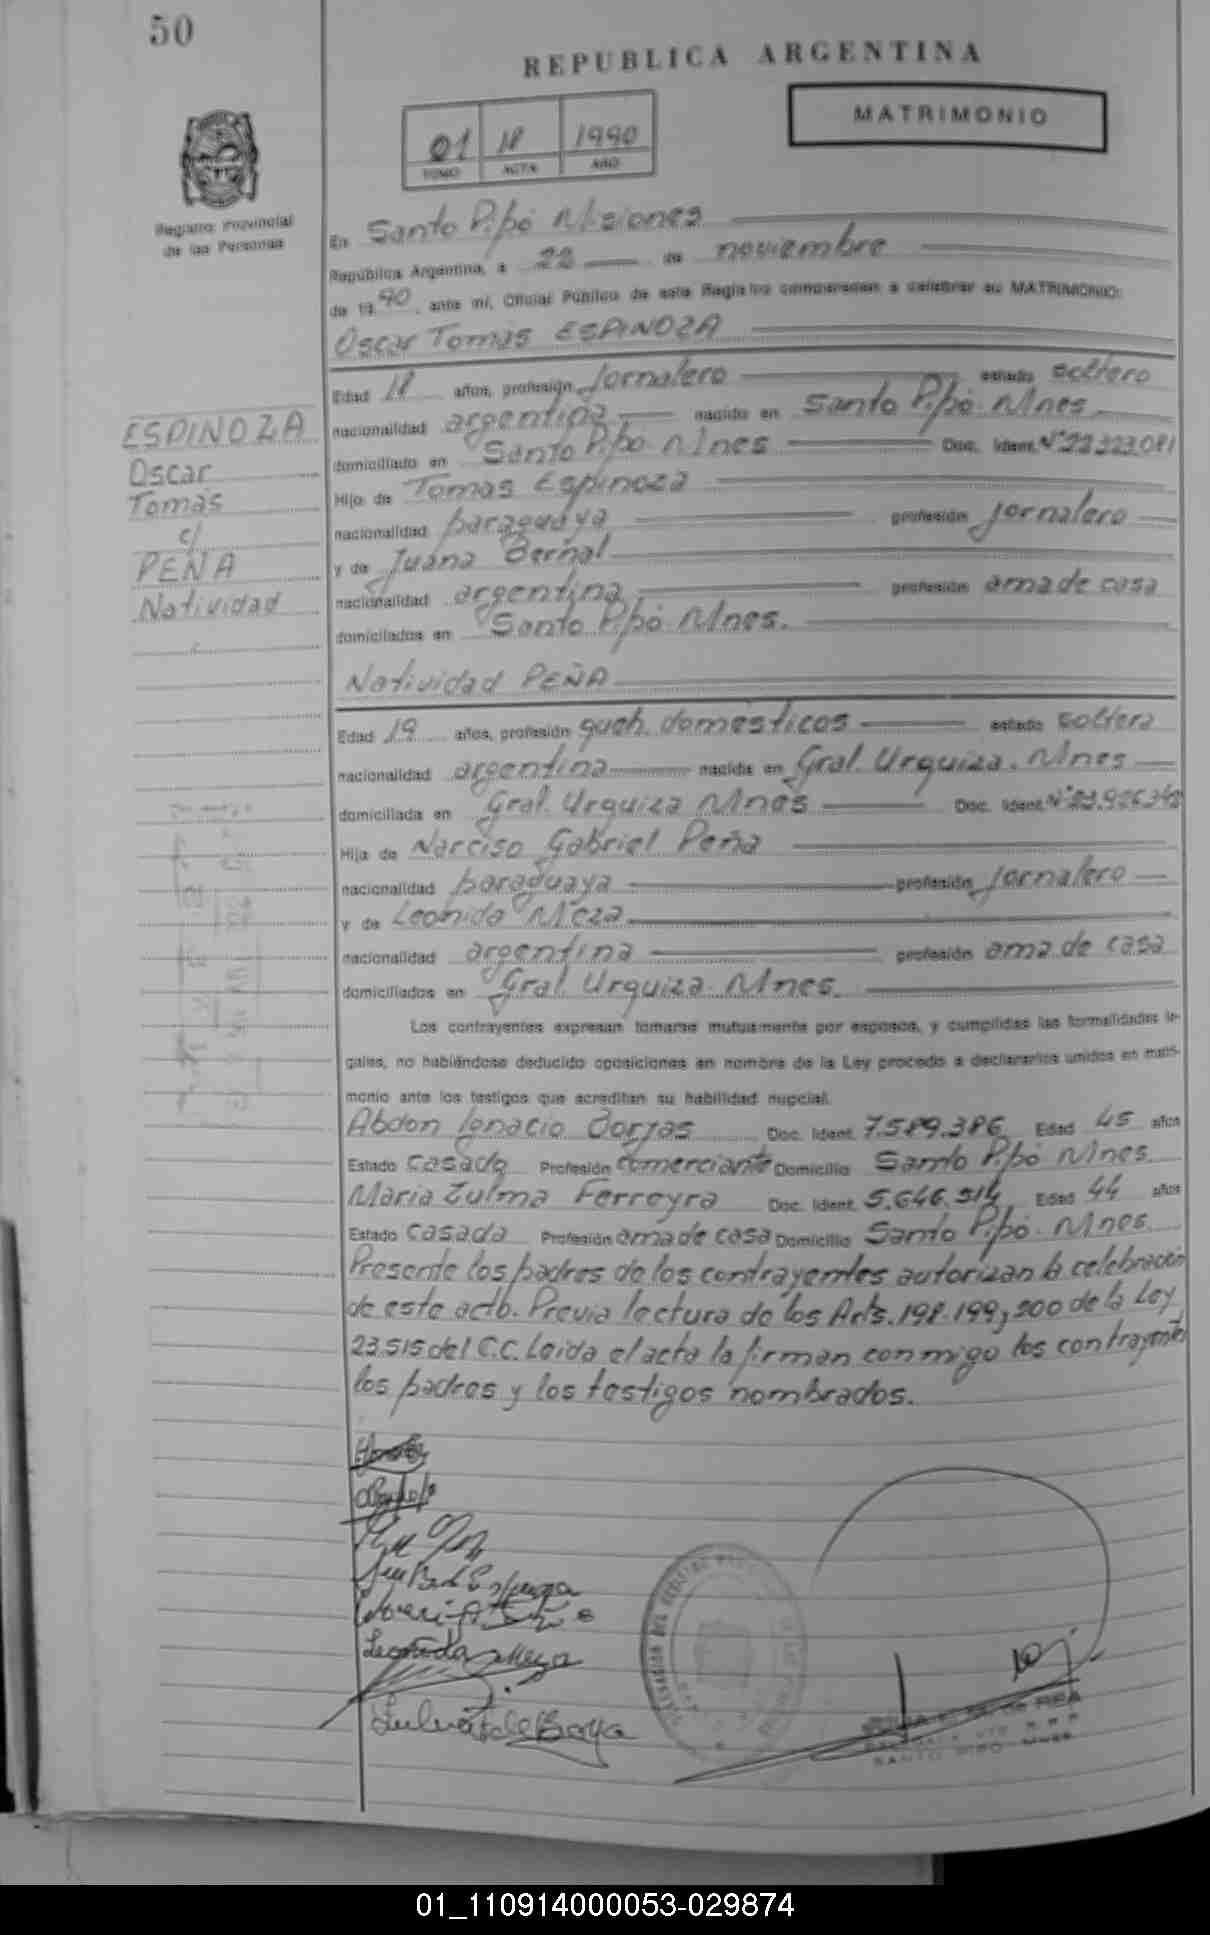 50
REPUBLICA ARGENTINA
MATRIMONIO
01 18 1990
TOMO ACTA AÑO
Registro Provincial
de las Personas
En Santo Pipó Misiones
República Argentina, a 22 de noviembre
de 19 90, ante mí, Oficial Público de este Registro comparecen a celebrar su MATRIMONIO:
Oscar Tomás ESPINOZA
Edad 18 años, profesión Jornalero estado soltero
nacionalidad argentina nacido en Santo Pipó Mnes
domiciliado en Santo Pipó Mnes Doc. Ident. Nº 22.323.081
Hijo de Tomás Espinoza
nacionalidad paraguaya profesión Jornalero
y de Juana Bernal
nacionalidad argentina profesión ama de casa
domiciliados en Santo Pipó Mnes.
ESPINOZA
Oscar
Tomás
c/
PEÑA
Natividad
Natividad PEÑA
Edad 19 años, profesión queh. domésticos estado soltera
nacionalidad argentina nacida en Gral. Urquiza. Mnes
domiciliada en Gral. Urquiza Mnes Doc. Ident. Nº
Hija de Narciso Gabriel Peña
nacionalidad paraguaya profesión Jornalero
y de Leonida Meza
nacionalidad argentina profesión ama de casa
domiciliados en Gral. Urquiza Mnes.
Los contrayentes expresan tomarse mutuamente por esposos, y cumplidas las formalidades le-
gales, no habiéndose deducido oposiciones en nombre de la Ley procedo a declararlos unidos en matri-
monio ante los testigos que acreditan su habilidad nupcial.
Abdon Ignacio Borjas Doc. Ident. 7.589.386 Edad 45 años
Estado casado Profesión comerciante Domicilio Santo Pipó Mnes
Maria Zulma Ferreyra Doc. Ident. 5.646.514 Edad 44 años
Estado casada Profesión ama de casa Domicilio Santo Pipó. Mnes.
Presente los padres de los contrayentes autorizan la celebración
de este acto. Previa lectura de los Arts. 198.199, 200 de la Ley
23.515 del C.C. Leida el acta la firman conmigo los contrayentes
los padres y los testigos nombrados.
Leonida Meza
SANTO PIPO MNES
01_110914000053-029874